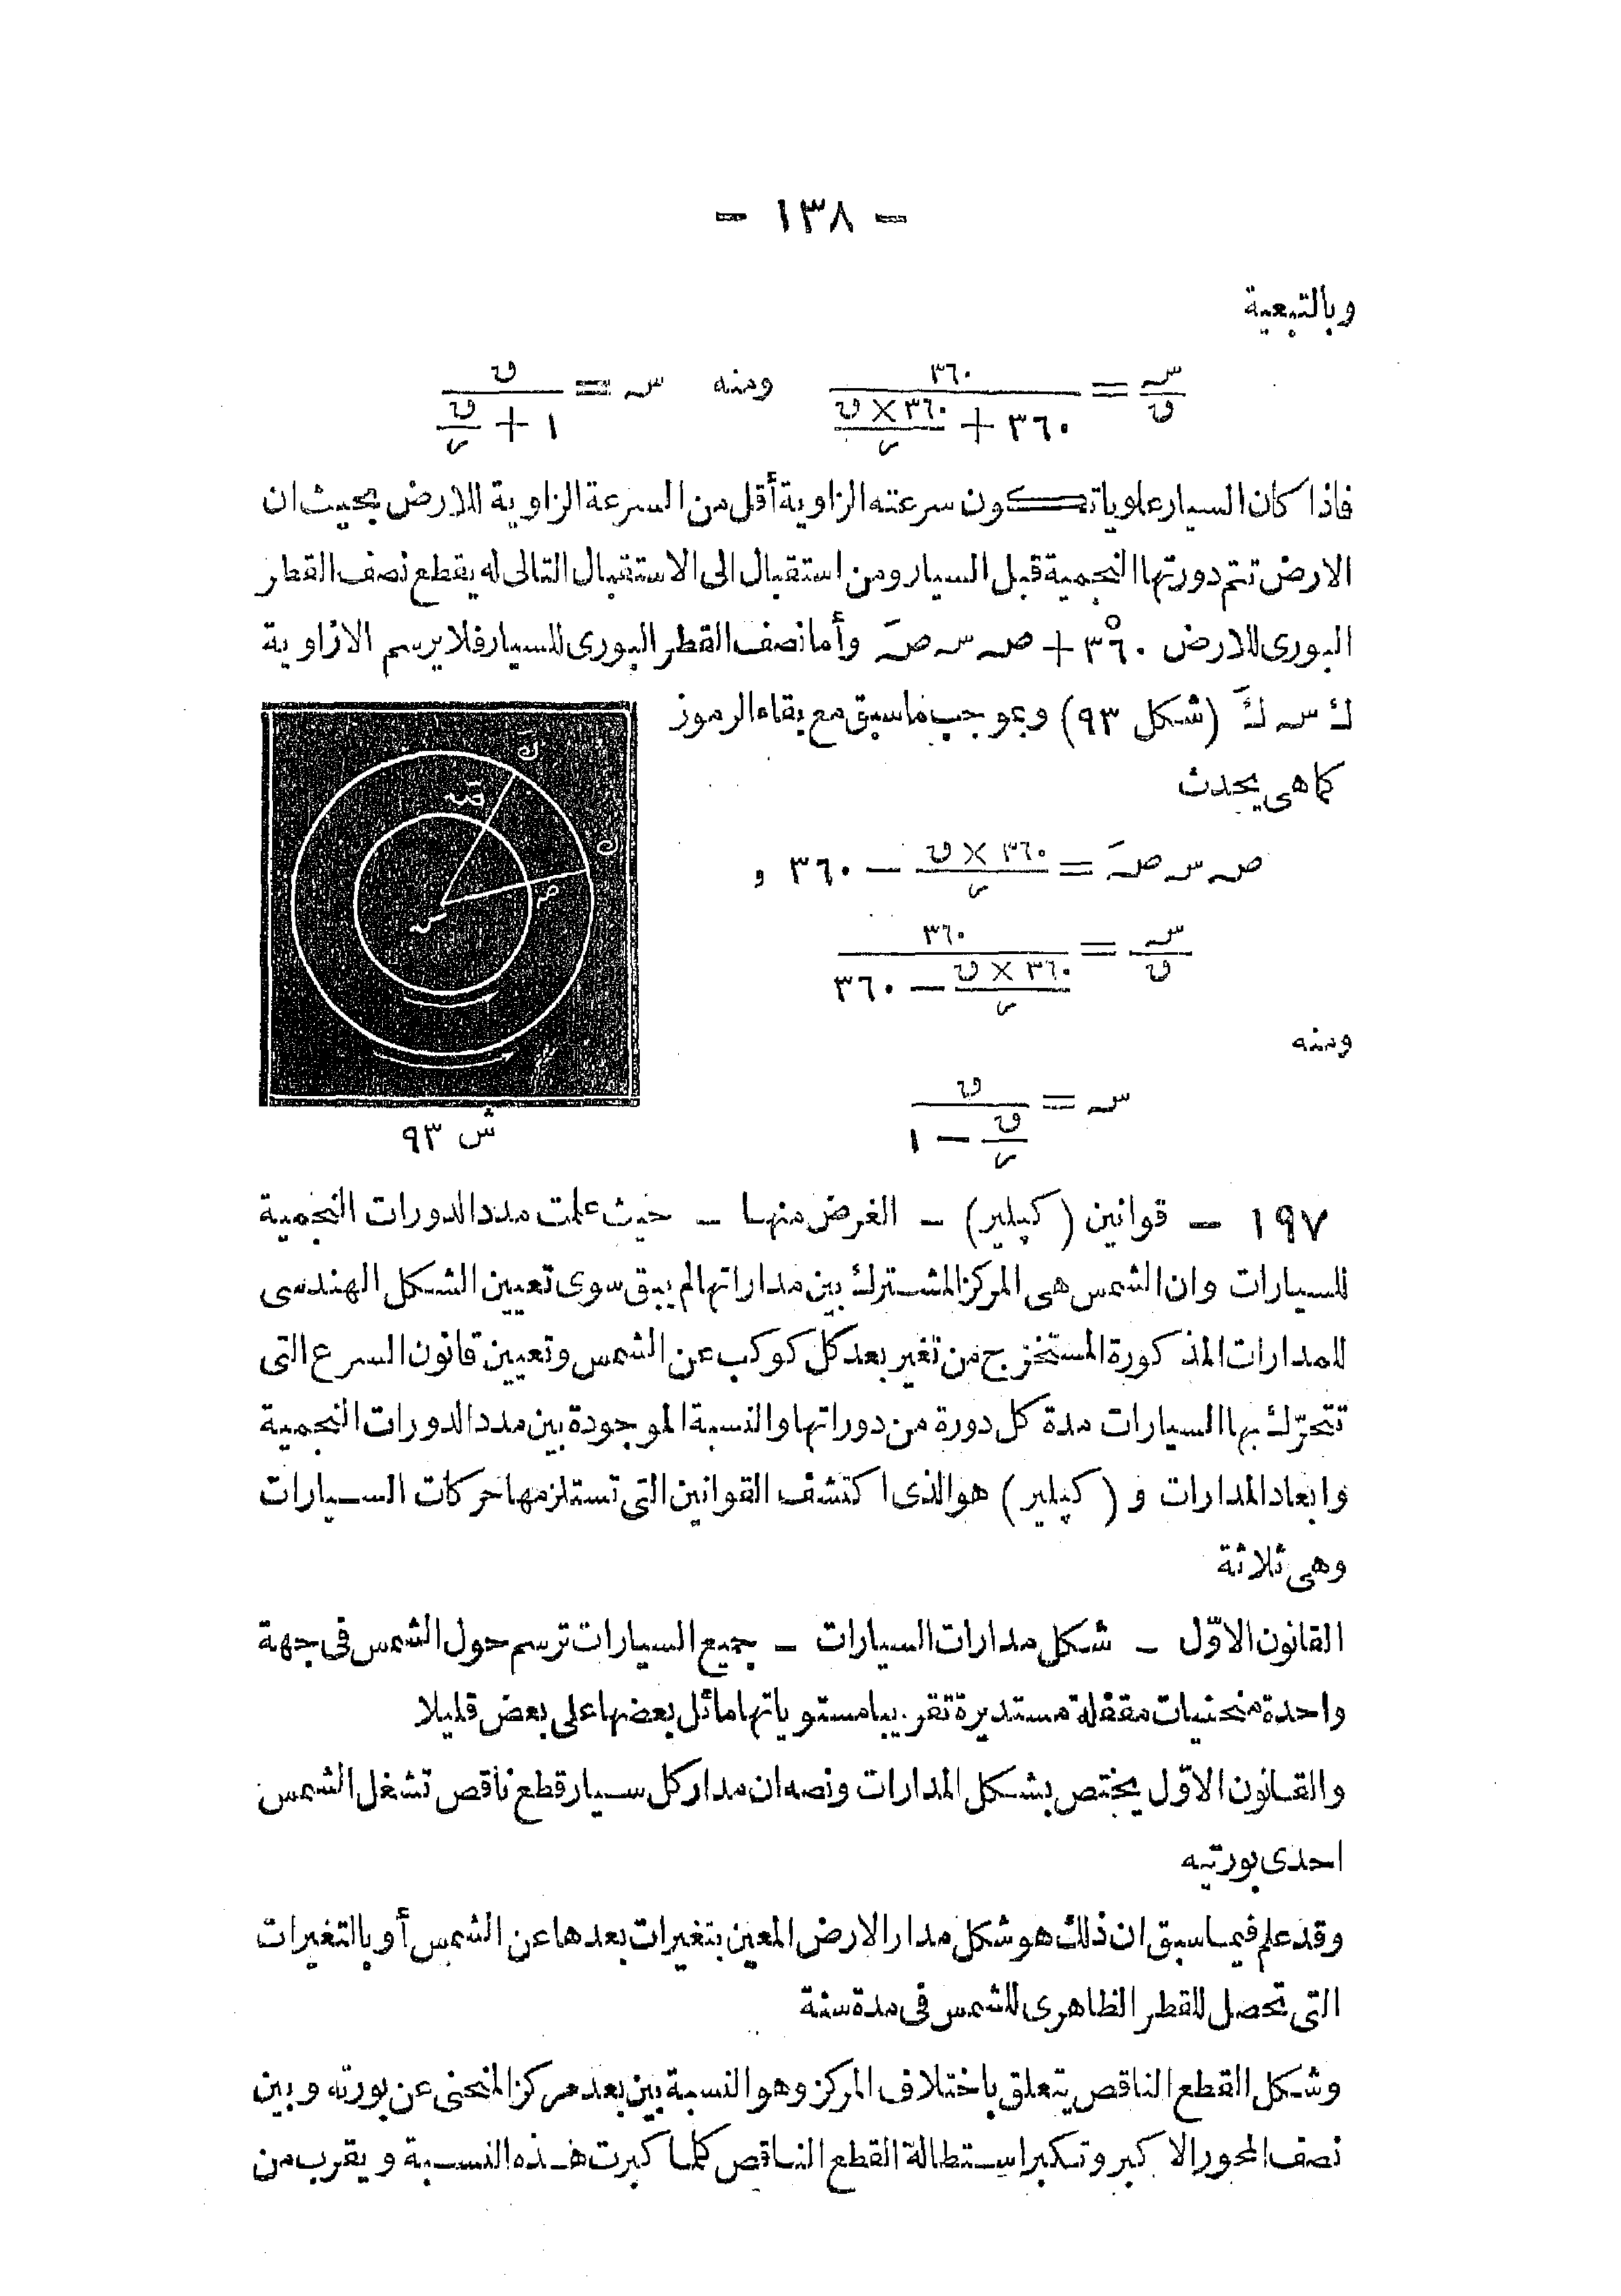 — ١٣٨ —
وبالتبعية
س/ں = ٣٦٠/(٣٦٠ + (٣٦٠ × ں)/م) ومنه س = ں/(١ + ں/م)
فاذا كان السيار علويا تكون سرعته الزاوية أقل من السرعة الزاوية للارض بحيث ان
الارض تتم دورتها النجمية قبل السيار ومن استقبال الى الاستقبال التالى له يقطع نصف القطر
البورى للارض ٣٦٠° + ص س صَ وأما نصف القطر البورى للسيار فلا يرسم الا زاوية
ك س كَ (شكل ٩٣) وبموجب ما سبق مع بقاء الرموز
كما هى يحدث
ص س صَ = (٣٦٠ × ں)/م — ٣٦٠ ,
س/ں = ٣٦٠/((٣٦٠ × ں)/م — ٣٦٠)
ومنه
س = ں/(ں/م — ١)
كَ
صَ
ك
ص
س
ش ٩٣
١٩٧ — قوانين (كپلير) — الغرض منها — حيث علمت مدد الدورات النجمية
للسيارات وان الشمس هى المركز المشترك بين مداراتها لم يبق سوى تعيين الشكل الهندسى
للمدارات المذكورة المستخرج من تغير بعد كل كوكب عن الشمس وتعيين قانون السرع التى
تتحرّك بها السيارات مدة كل دورة من دوراتها والنسبة الموجودة بين مدد الدورات النجمية
وابعاد المدارات و (كپلير) هو الذى اكتشف القوانين التى تستلزمها حركات السيارات
وهى ثلاثة
القانون الاوّل — شكل مدارات السيارات — جميع السيارات ترسم حول الشمس فى جهة
واحدة منحنيات مقفلة مستديرة تقريبا مستوياتها مائل بعضها على بعض قليلا
والقانون الاوّل يختص بشكل المدارات ونصه ان مدار كل سيار قطع ناقص تشغل الشمس
احدى بورتيه
وقد علم فيما سبق ان ذلك هو شكل مدار الارض المعين بتغيرات بعدها عن الشمس أو بالتغيرات
التى تحصل للقطر الظاهرى للشمس فى مدة سنة
وشكل القطع الناقص يتعلق باختلاف المركز وهو النسبة بين بعد مركز المنحنى عن بورته وبين
نصف المحور الاكبر وتكبر استطالة القطع الناقص كلما كبرت هذه النسبة ويقرب من